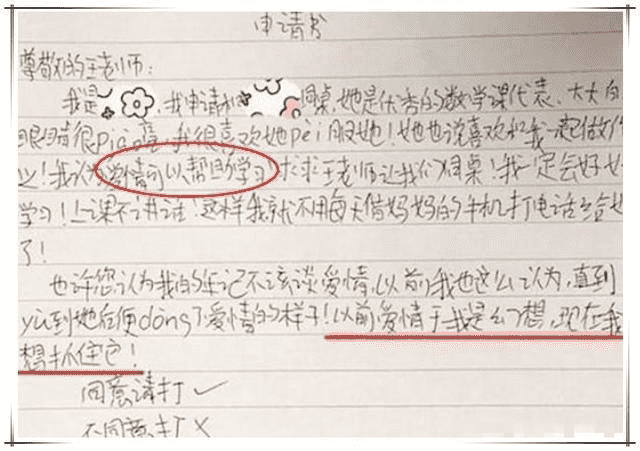 申请书
尊敬的王老师：
我是 ，我申请和 同桌，她是优秀的数学课代表、大大的
眼睛很piào亮，我很喜欢她pèi服她！她也说喜欢和我一起做作
业！我认为爱情可以帮助学习！求求王老师让我们同桌！我一定会好好
学习！上课不讲话！这样我就不用每天借妈妈的手机打电话给她
了！
也许您认为我的年记不该谈爱情，以前我也这么认为，直到
yù到她后便dǒng了爱情的样子！以前爱情于我是幻想，现在我
想抓住它！
同意请打✓
不同意打×